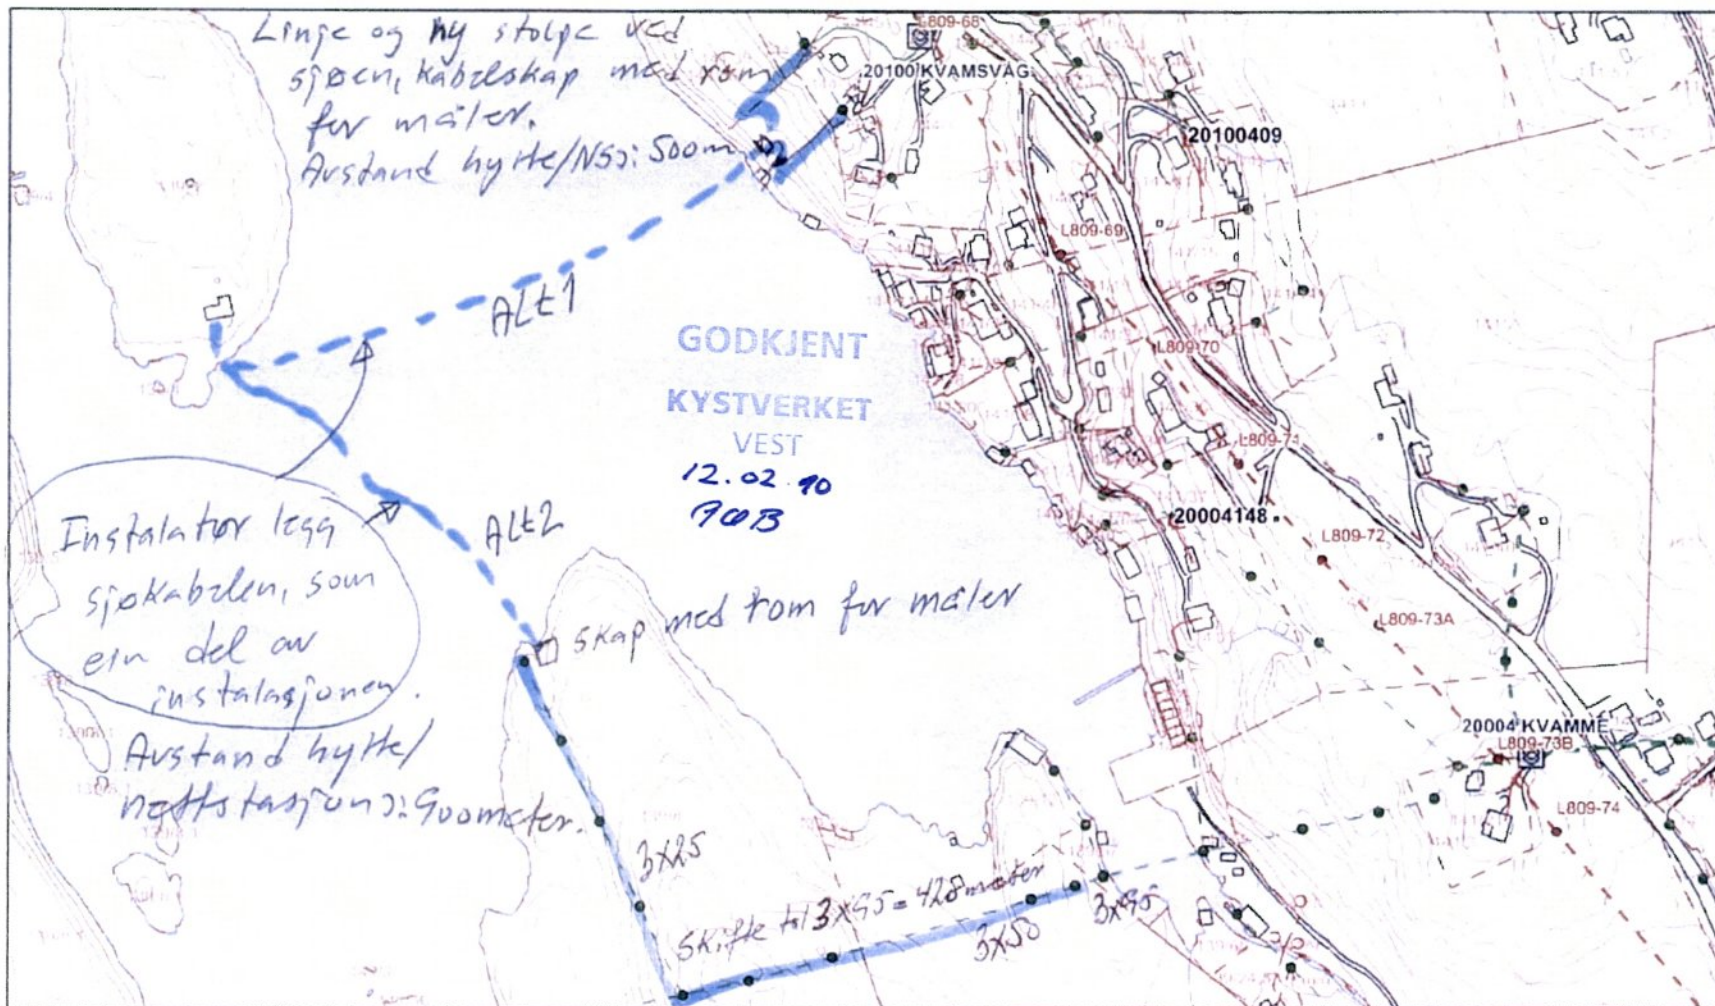 Linje og ny stolpe ved
sjøen, kabelskap med rom
for måler.
Avstand hytte/NS: 500m
L809-68
20100 KVAMSVAG
20100409
L809-69
ALt1
GODKJENT
KYSTVERKET
VEST
12.02.10
L809-70
L809-71
ALt2
20004148
L809-72
Instalatør legg
sjøkabelen, som
ein del av
instalasjonen.
skap med rom for måler
L809-73A
Avstand hytte/
nettstasjon: 900meter.
20004 KVAMME
L809-73B
L809-74
3x25
Skifte til 3x95 = 428 meter
3x50
3x95